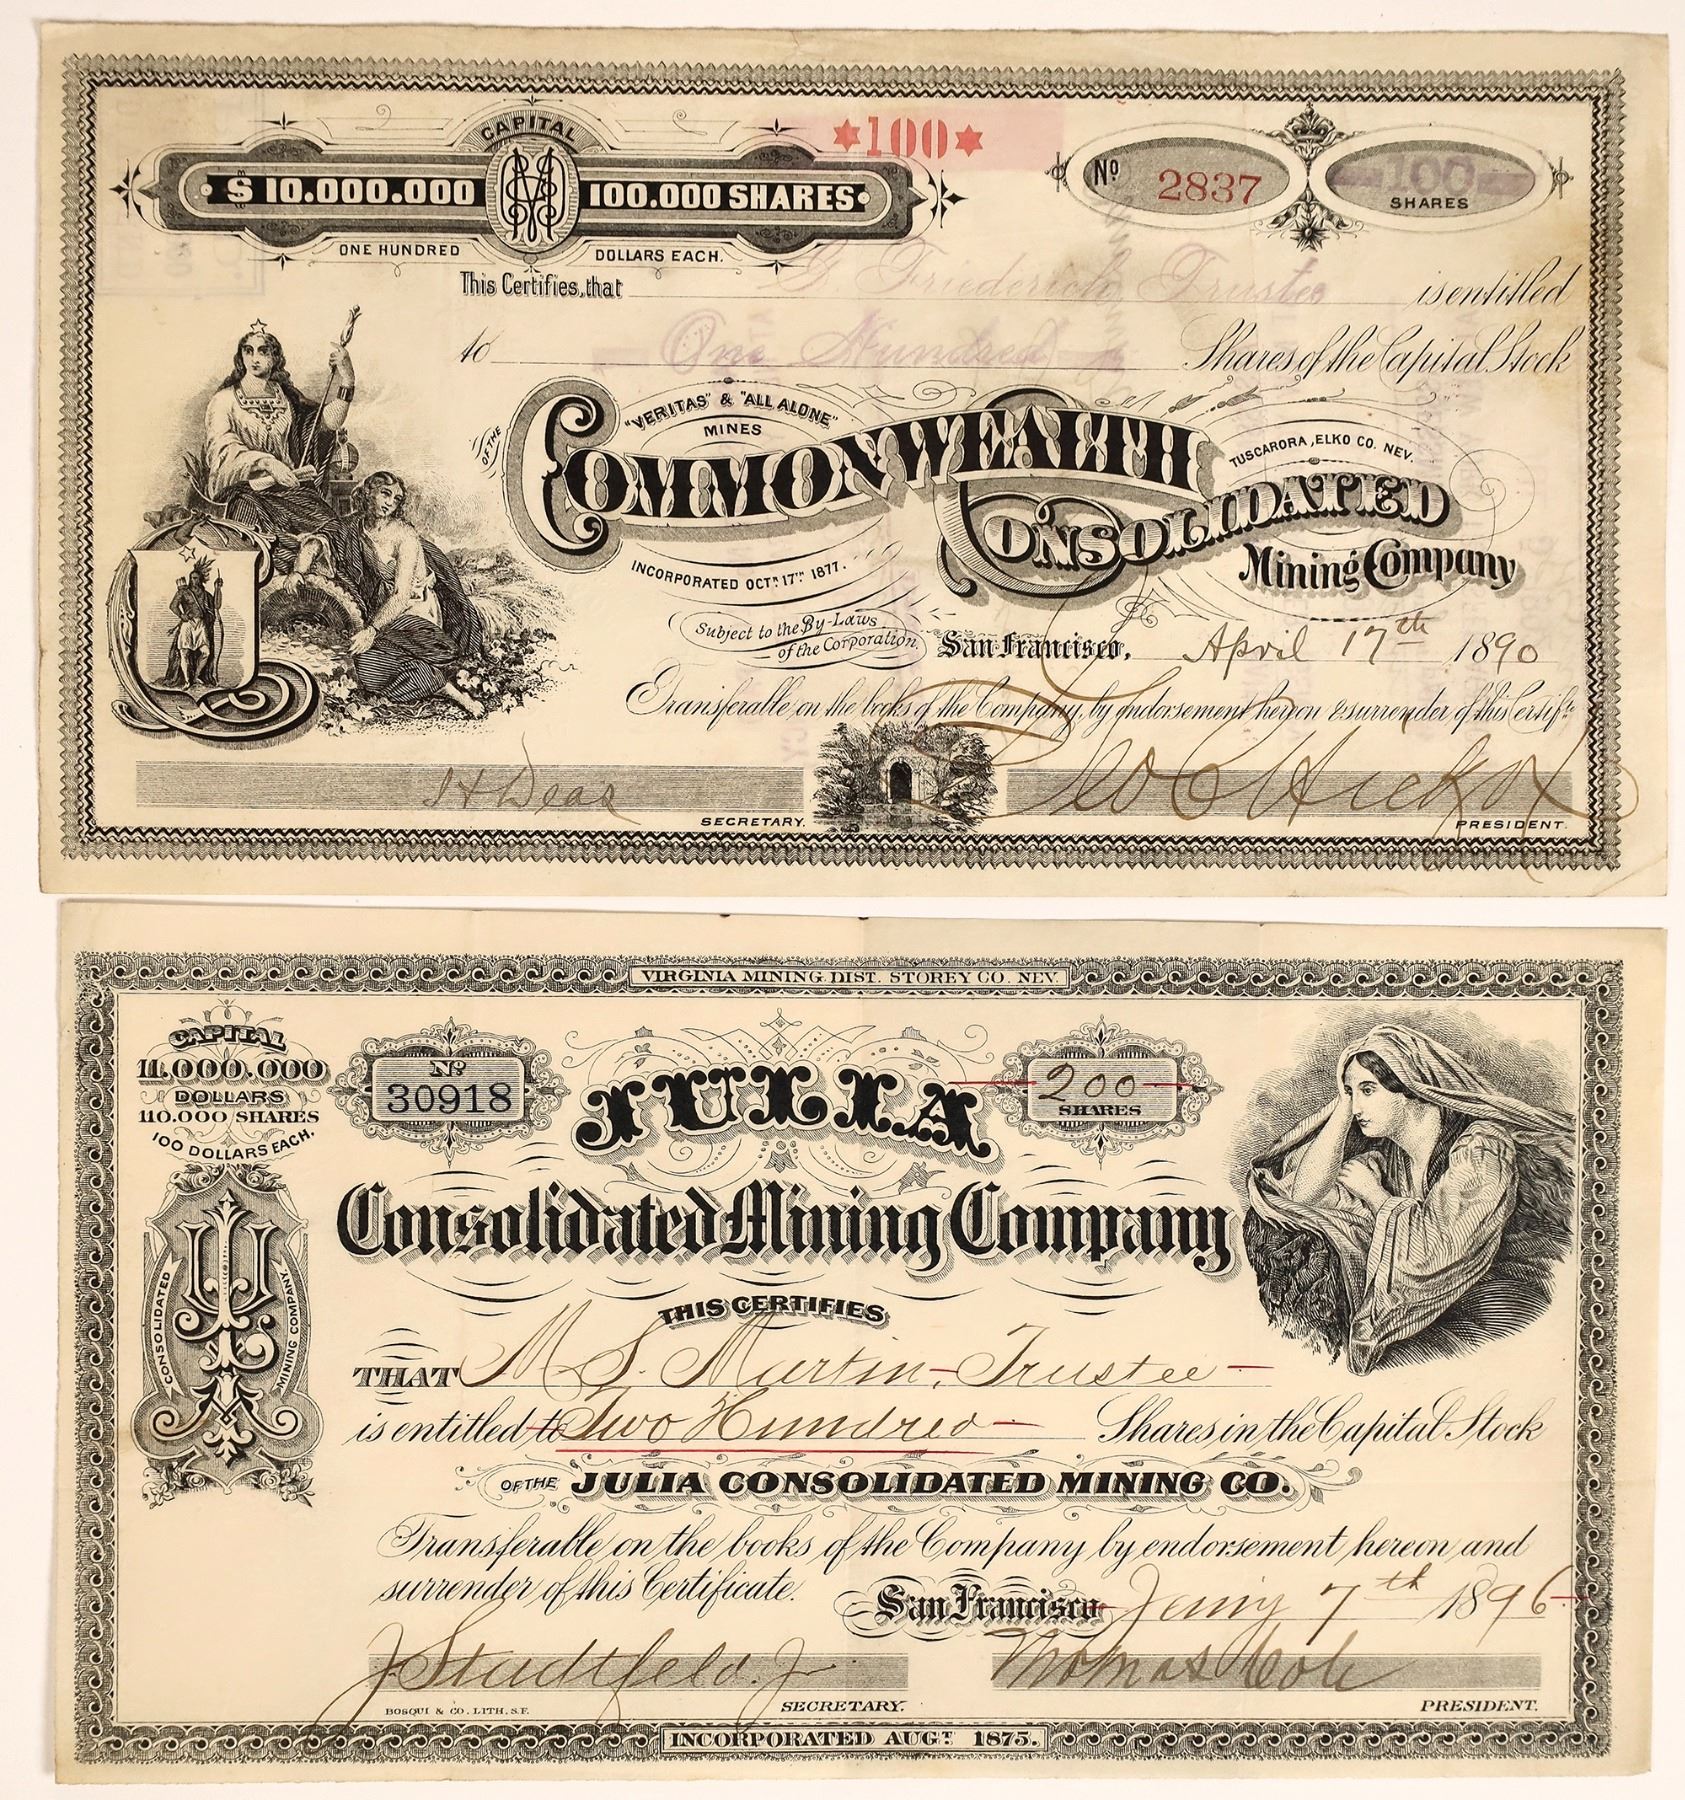 CAPITAL
$10.000.000 100.000 SHARES
ONE HUNDRED DOLLARS EACH.
*100*
No 2837
100 SHARES
This Certifies, that G. Friederich Trustee is entitled
to One Hundred Shares of the Capital Stock
OF THE "VERITAS" & "ALL ALONE" MINES
COMMONWEALTH CONSOLIDATED
TUSCARORA, ELKO CO. NEV.
Mining Company
INCORPORATED OCTR. 17TH 1877.
Subject to the By-Laws
of the Corporation.
San Francisco, April 17th 1890
Transferable on the books of the Company, by endorsement hereon & surrender of this Certifte
SECRETARY.
Geo C Hickox
PRESIDENT.
VIRGINIA MINING DIST. STOREY CO. NEV.
CAPITAL
11.000.000
DOLLARS
110.000 SHARES
100 DOLLARS EACH.
No
30918
JULIA
200
SHARES
Consolidated Mining Company
CONSOLIDATED
MINING COMPANY
THIS CERTIFIES
THAT M S. Martin, Trustee
is entitled to Two Hundred Shares in the Capital Stock
OF THE JULIA CONSOLIDATED MINING CO.
Transferable on the books of the Company by endorsement hereon and
surrender of this Certificate.
San Francisco 7th 1896
J Stadtfeld Jr
Thomas Cole
BOSQUI & CO. LITH. S.F.
SECRETARY.
PRESIDENT.
INCORPORATED AUGT. 1875.